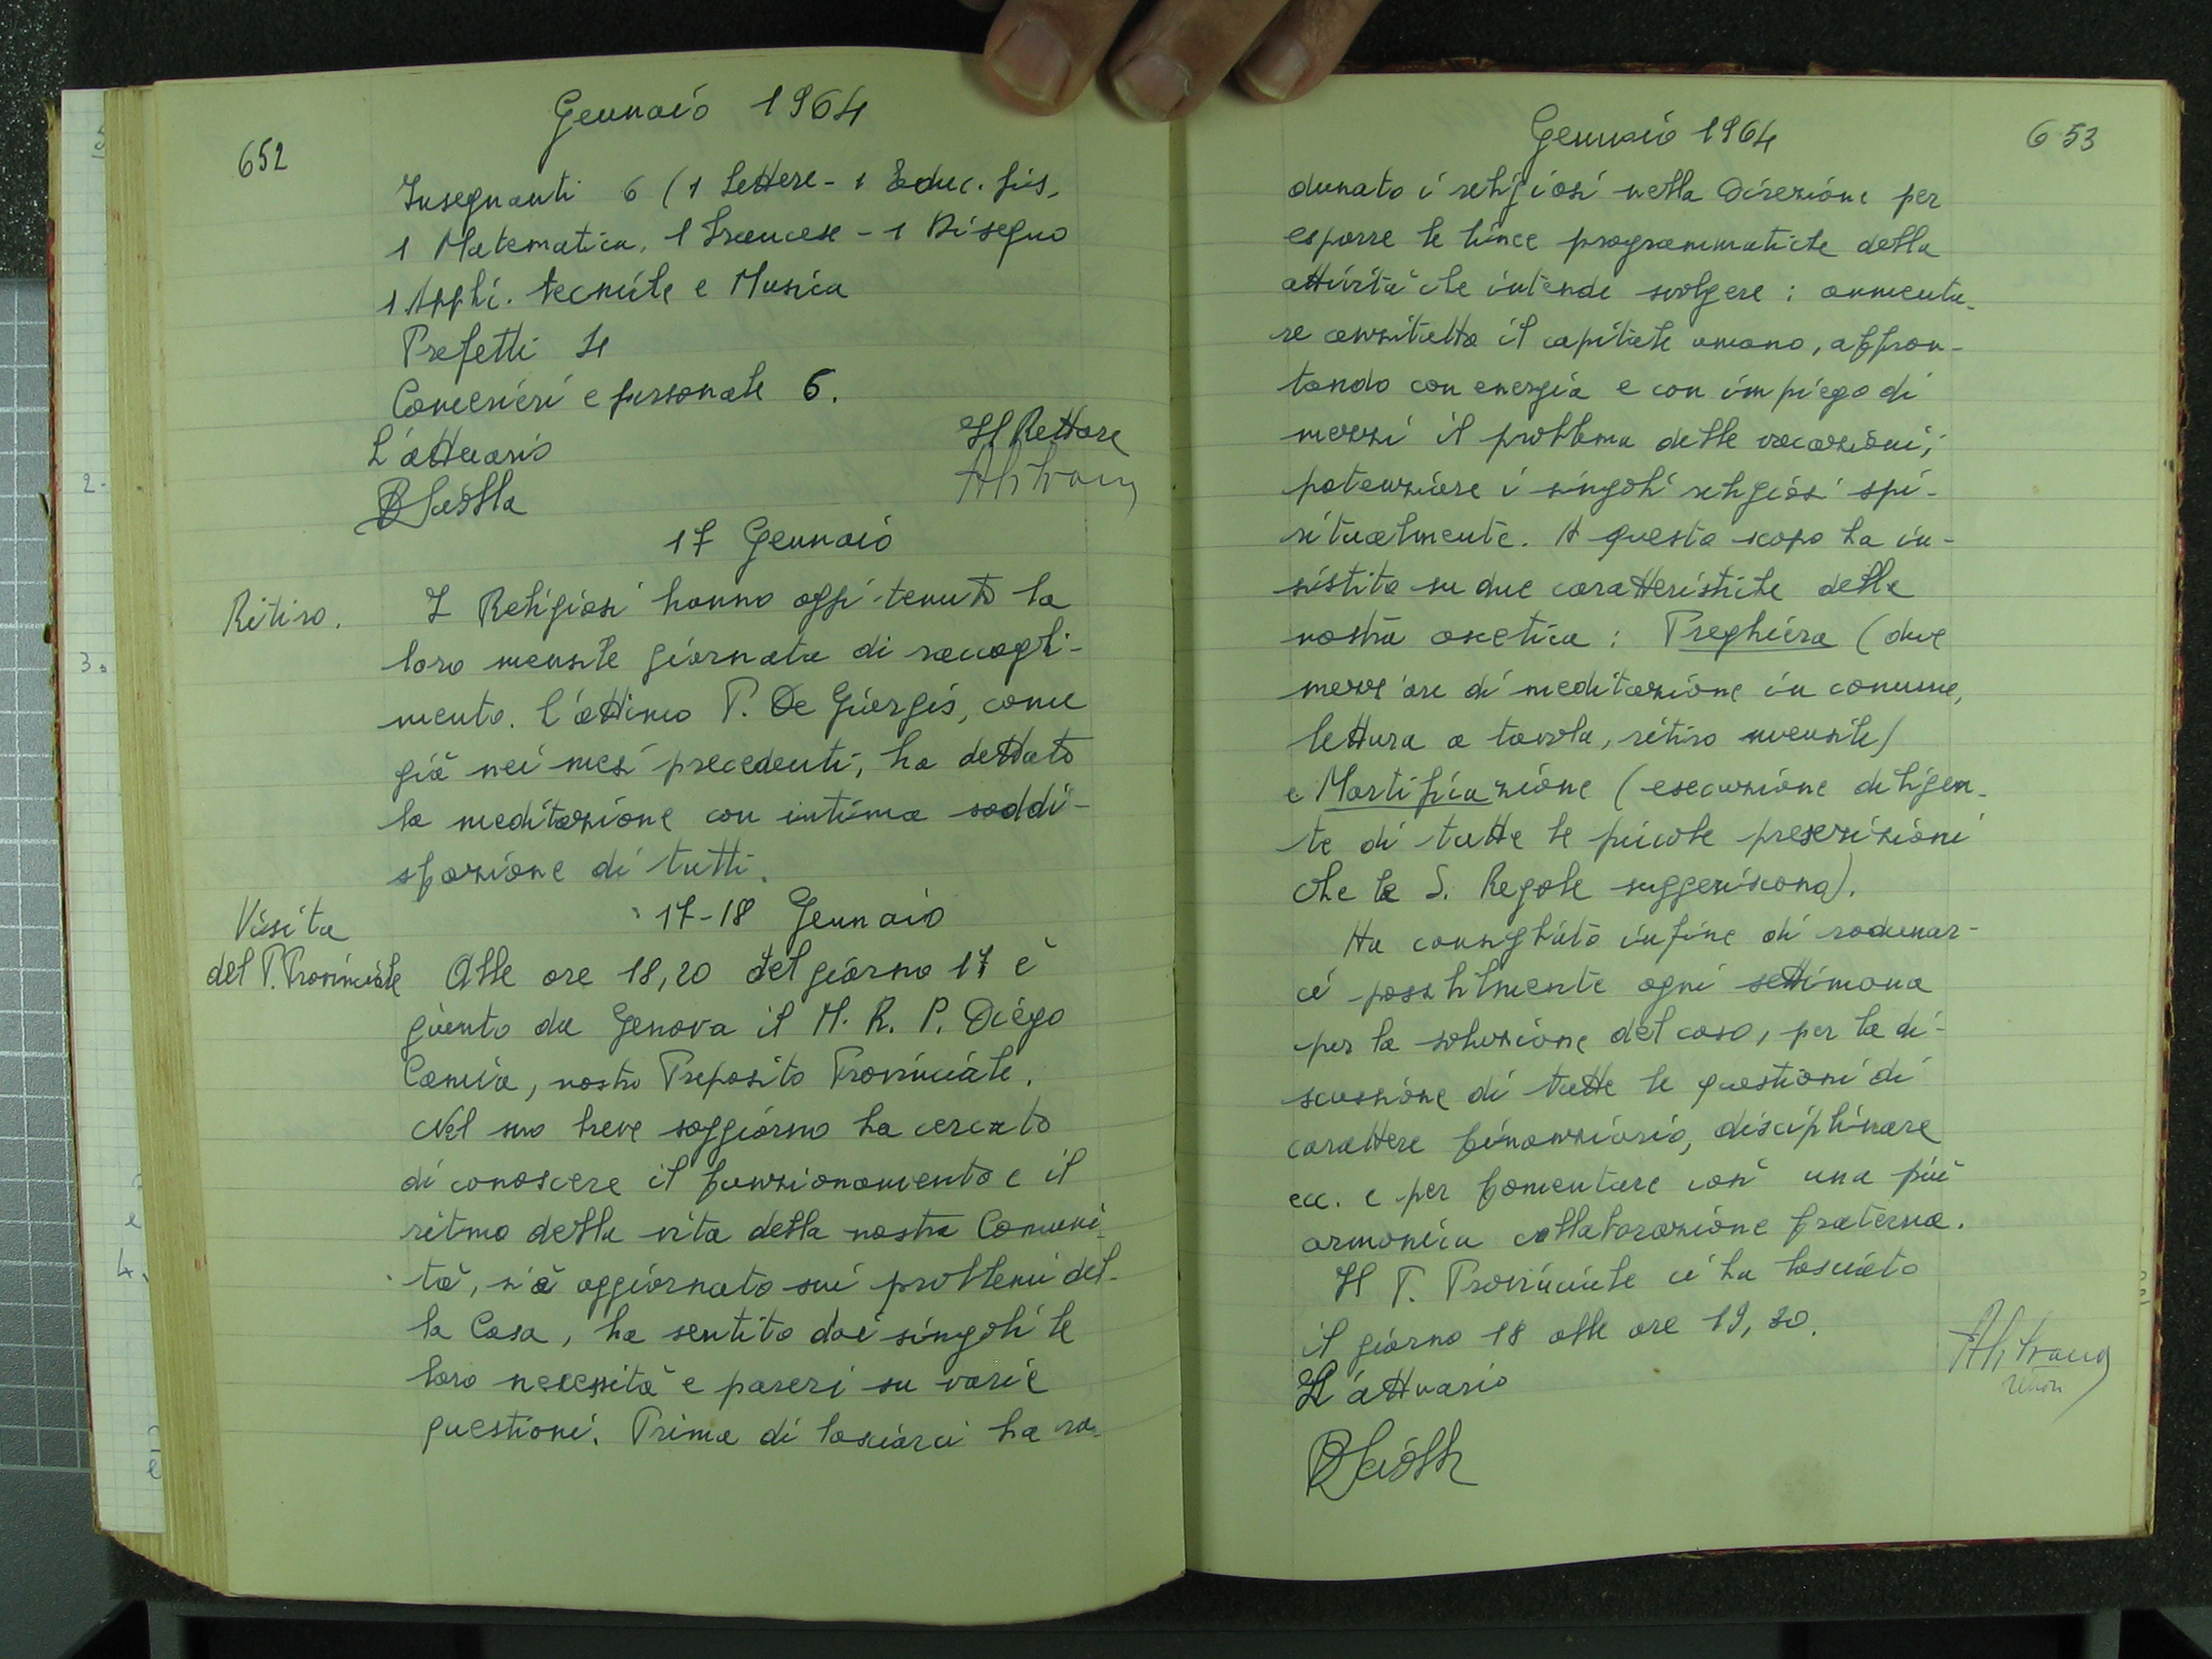 Gennaio 1964
652
Insegnanti 6 (1 Lettere - 1 Educ. fis.
1 Matematica, 1 Francese - 1 Disegno
1 Appli. tecniche e Musica
Prefetti 4
Camerieri e personale 6.
L'attuario
Il Rettore
17 Gennaio
Ritiro.
I Religiosi hanno oggi tenuto la
loro mensile giornata di raccogli-
mento. L'ottimo P. De Giorgis, come
già nei mesi precedenti, ha dettato
la meditazione con intima soddi-
sfazione di tutti.
17-18 Gennaio
Visita
del P. Provinciale
Alle ore 18,20 del giorno 17 è
giunto da Genova il M. R. P. Diego
Camia, nostro Preposito Provinciale.
Nel suo breve soggiorno ha cercato
di conoscere il funzionamento e il
ritmo della vita della nostra Comuni-
tà, s'è aggiornato sui problemi del-
la Casa, ha sentito dai singoli le
loro necessità e pareri su varie
questioni. Prima di lasciarci ha ra-
Gennaio 1964
653
dunato i religiosi nella Direzione per
esporre le linee programmatiche della
attività che intende svolgere: aumenta-
re anzitutto il capitale umano, affron-
tando con energia e con impiego di
mezzi il problema delle vocazioni;
potenziare i singoli religiosi spi-
ritualmente. A questo scopo ha in-
sistito su due caratteristiche della
nostra ascetica: Preghiera (due
mezz'ore di meditazione in comune,
lettura a tavola, ritiro mensile)
e Mortificazione (esecuzione diligen-
te di tutte le piccole prescrizioni
che le S. Regole suggeriscono).
Ha consigliato infine di radunar-
ci possibilmente ogni settimana
per la soluzione del caso, per la di-
scussione di tutte le questioni di
carattere finanziario, disciplinare
ecc. e per fomentare così una più
armonica collaborazione fraterna.
Il P. Provinciale ci ha lasciato
il giorno 18 alle ore 19,30.
L'attuario
2.
3.
4.